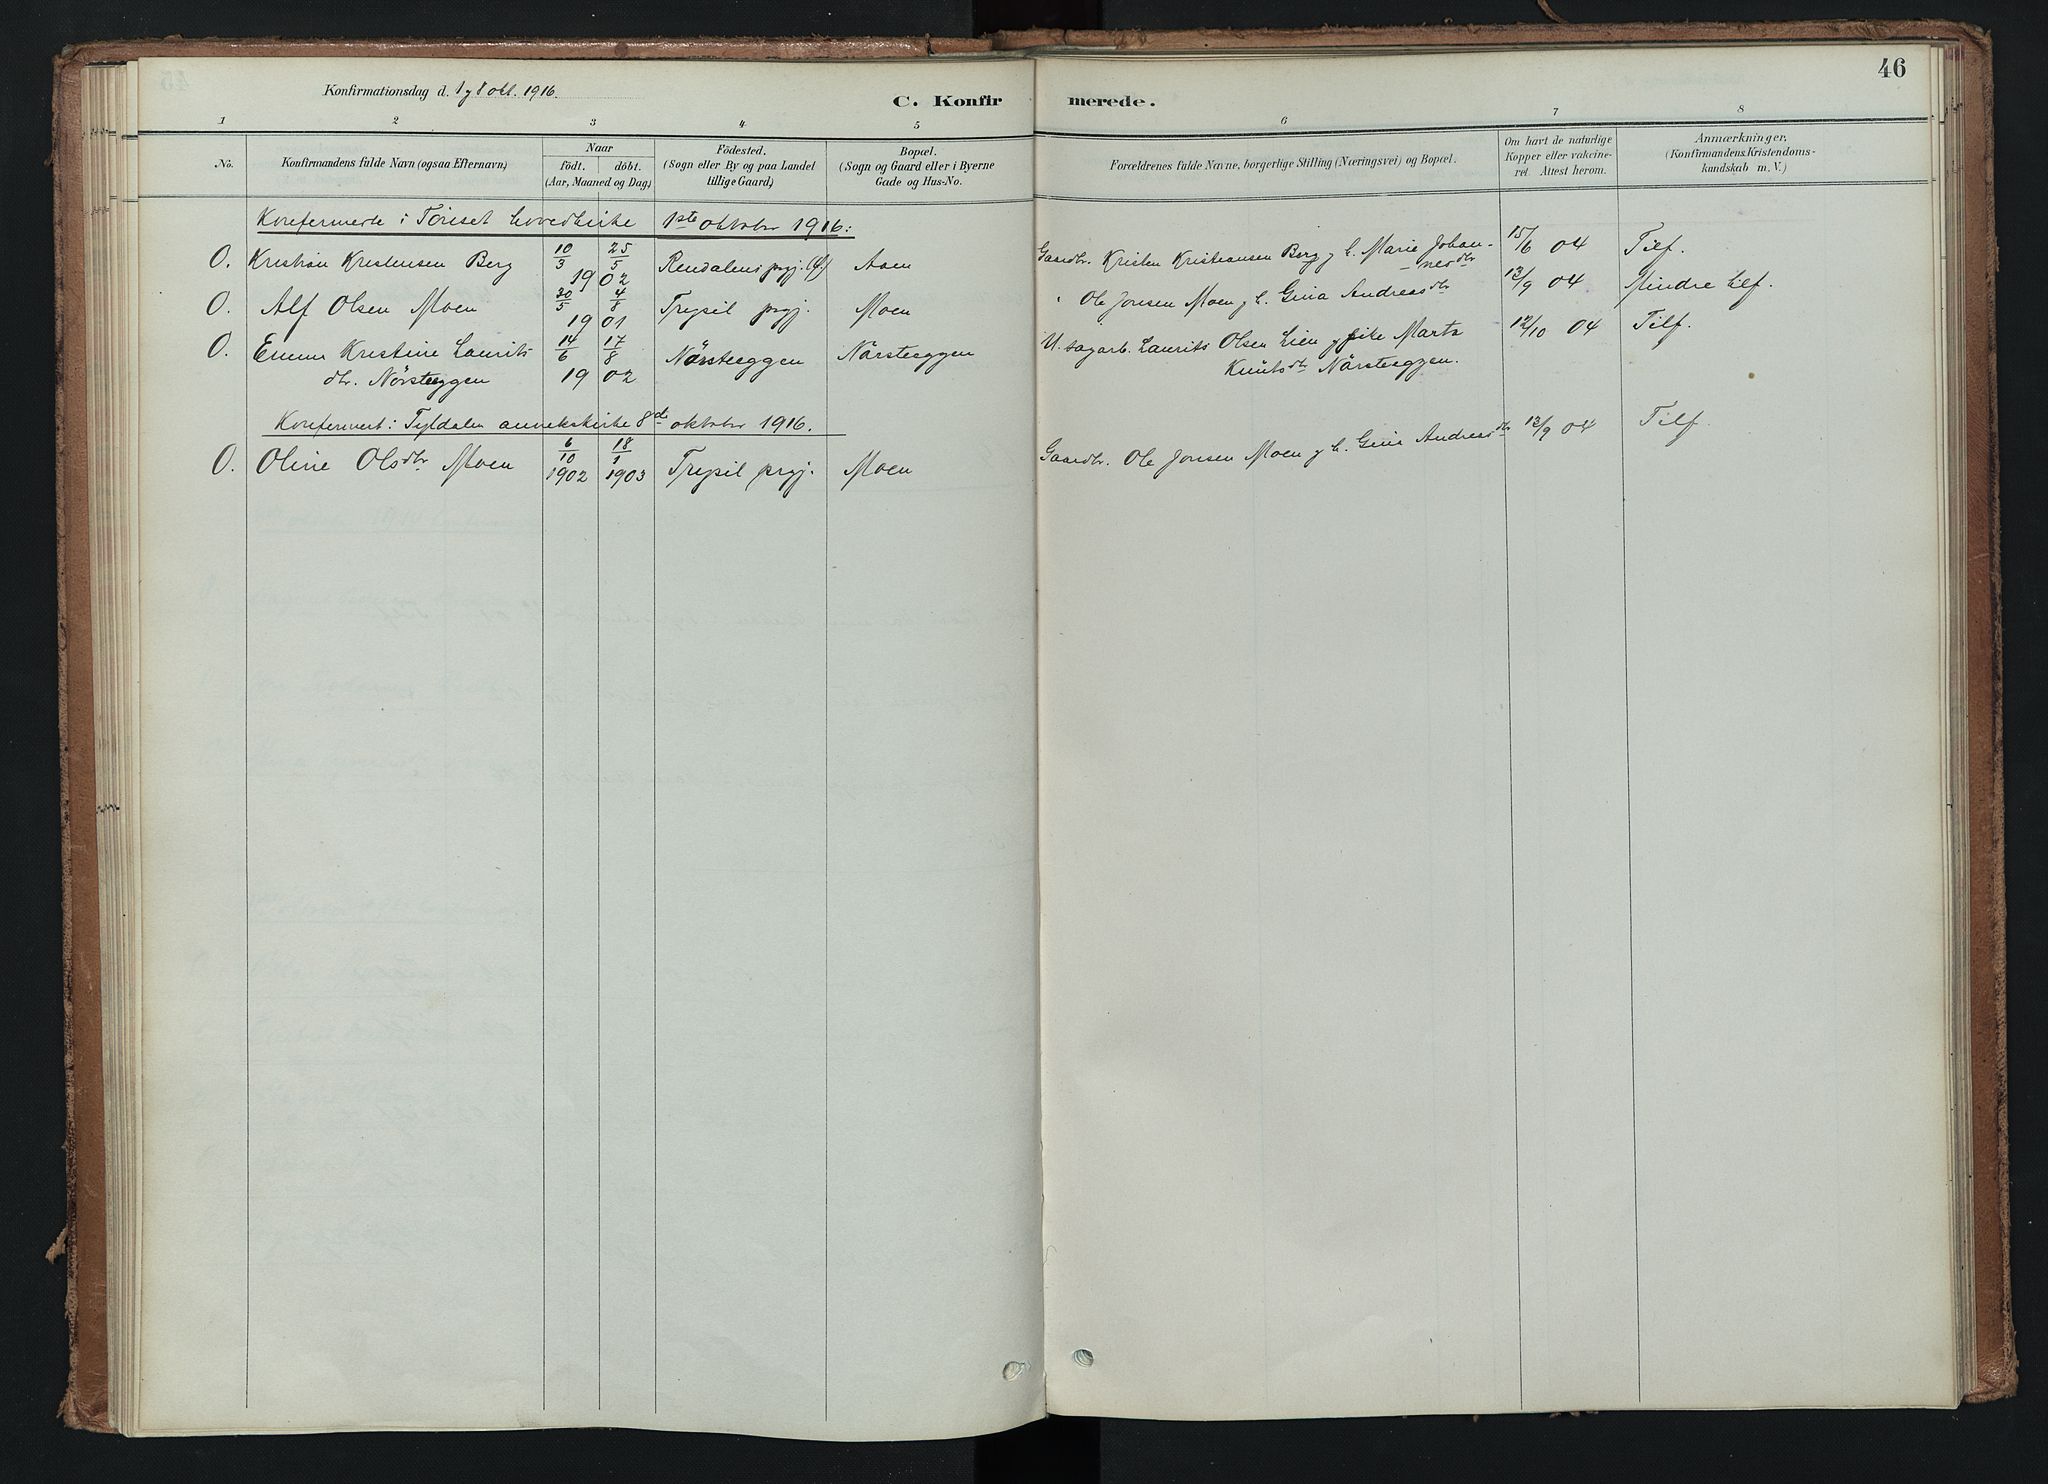 46
Konfirmationsdag d. 1 & 8 okt. 1916.
C. Konfirmerede.
1 2 3 4 5 6 7 8
No.
Konfirmandens fulde Navn (ogsaa Efternavn)
Naar
födt. döbt.
(Aar, Maaned og Dag)
Födested.
(Sogn eller By og paa Landet
tillige Gaard)
Bopæl.
(Sogn og Gaard eller i Byerne
Gade og Hus-No.
Forældrenes fulde Navne, borgerlige Stilling (Næringsvei) og Bopæl.
Om havt de naturlige
Kopper eller vakcine-
ret. Attest herom.
Anmærkninger,
(Konfirmandens Kristendoms-
kundskab m. V.)
Konfermerte i Tönset hovedkirke 1ste oktober 1916:
O. Kristian Kristensen Berg 10/3 25/5 1902 Rendalens prgj. (Ø.) Aaen Gaardbr. Kristen Kristiansen Berg & h. Marie Johan-
nesdtr 15/6 04 Tilf.
O. Alf Olsen Moen 30/5 4/8 1901 Trysil prgj. Moen " Ole Jonsen Moen & h. Gina Andreasdtr 12/9 04 Mindre tilf.
O. Emma Kristine Laurits 14/6 17/8 Nörsteeggen Nörsteeggen U. sagarb. Laurits Olsen Lien & pike Marta 12/10 04 Tilf.
dtr. Nörsteeggen 1902 Knutsdtr Nörsteeggen.
Konfermert i Tyldalen annekskirke 8de oktober 1916.
O. Oline Olsdtr Moen 6/10 1902 18/1 1903 Trysil prgj. Moen Gaardbr. Ole Jonsen Moen & h. Gina Andreasdtr 12/9 04 Tilf.